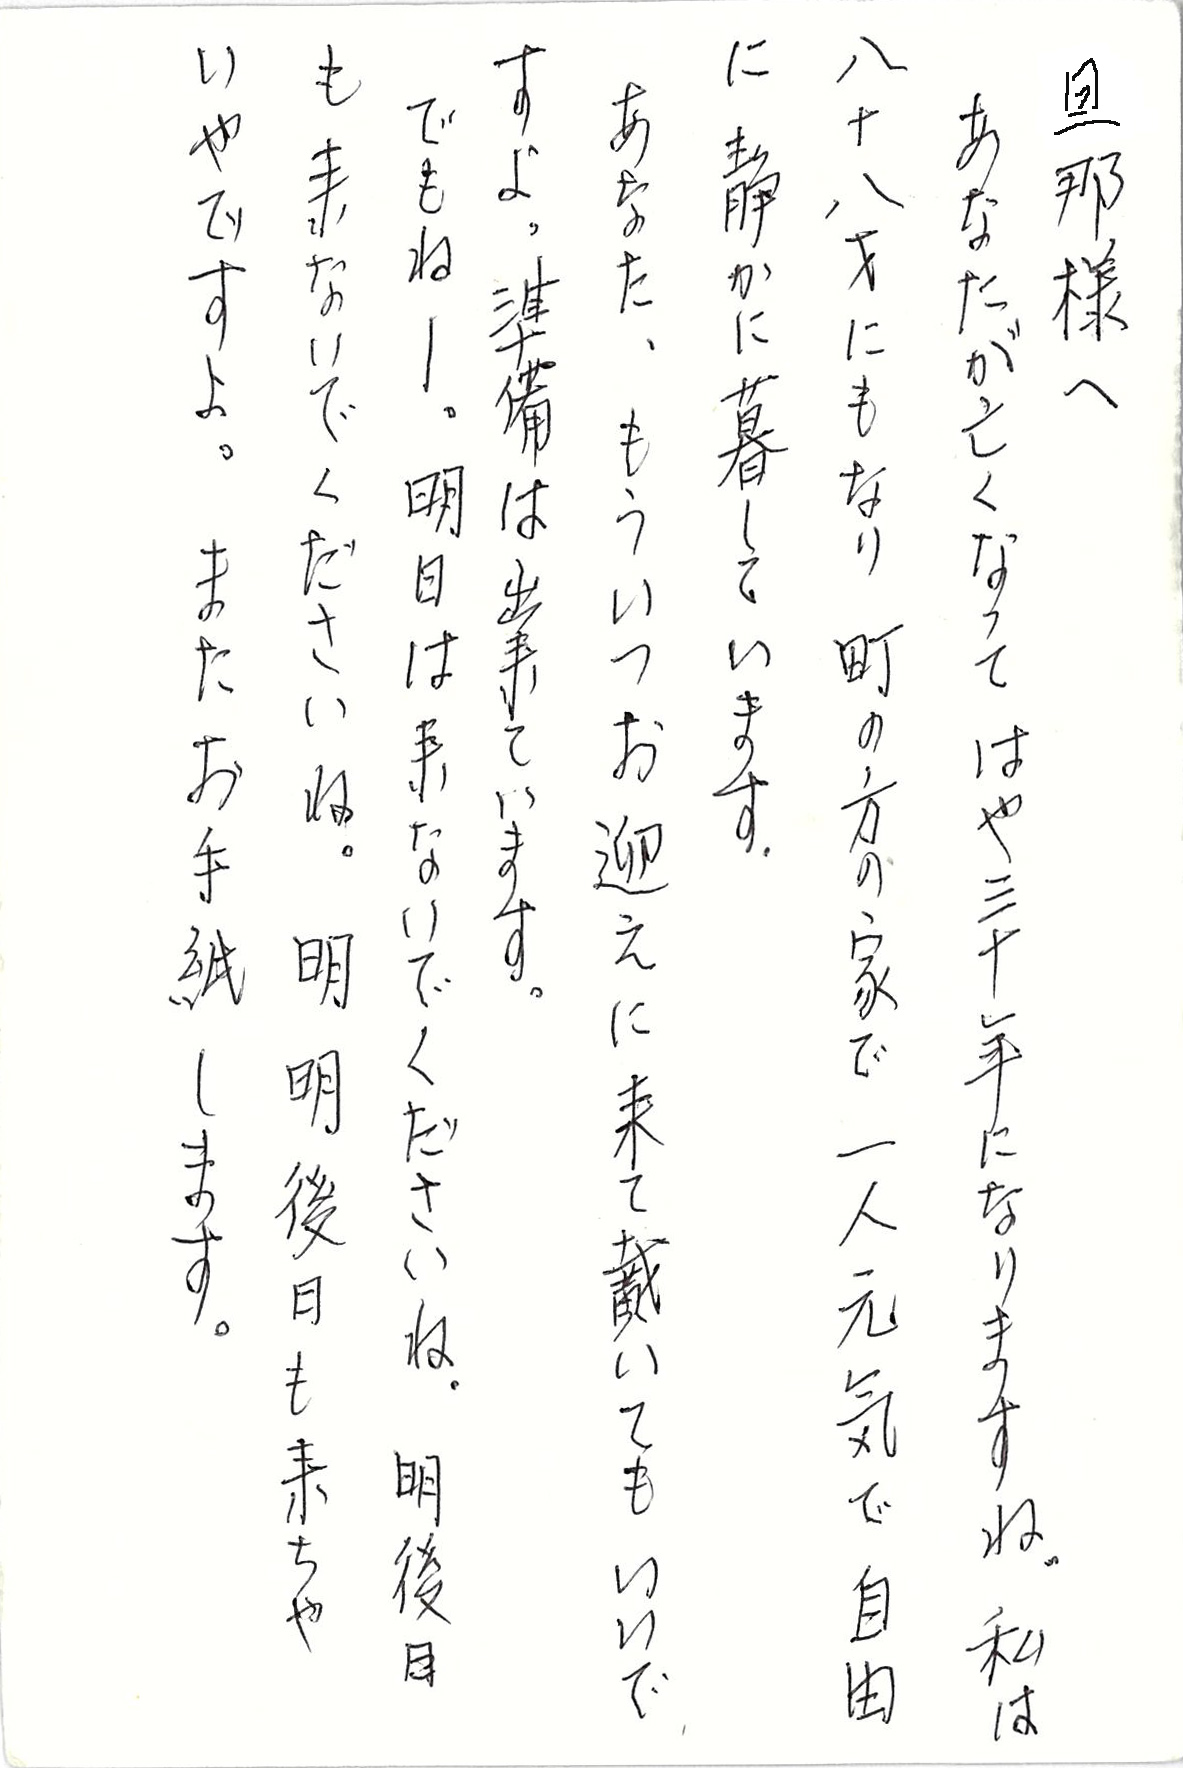 旦那様へ
あなたが亡くなって はや三十年になりますね。私は
八十八才にもなり 町の方の家で 一人元気で自由
に静かに暮しています。
あなた、もういつお迎えに来て戴いても いいで
すよ。準備は出来ています。
でもねー。明日は来ないでくださいね。明後日
も来ないでくださいね。明明後日も来ちゃ
いやですよ。またお手紙します。